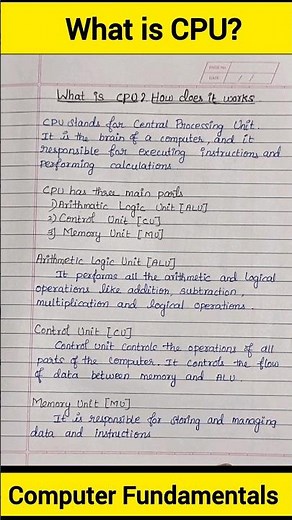 What is CPU?
PAGE No
DATE / /
What is CPU? How does it works
CPU stands for Central Processing Unit.
It is the brain of a computer, and it
responsible for executing instructions and
performing calculations
CPU has three main parts
1) Arithmatic Logic Unit [ALU]
2) Control Unit [CU]
3) Memory Unit [MU]
Arithmetic Logic Unit [ALU]
It performs all the arithmetic and logical
operations like addition, subtraction,
multiplication and logical operations.
Control Unit [CU]
Control Unit controls the operations of all
parts of the computer. It controls the flow
of data between memory and ALU.
Memory Unit [MU]
It is responsible for storing and managing
data and instructions
Computer Fundamentals